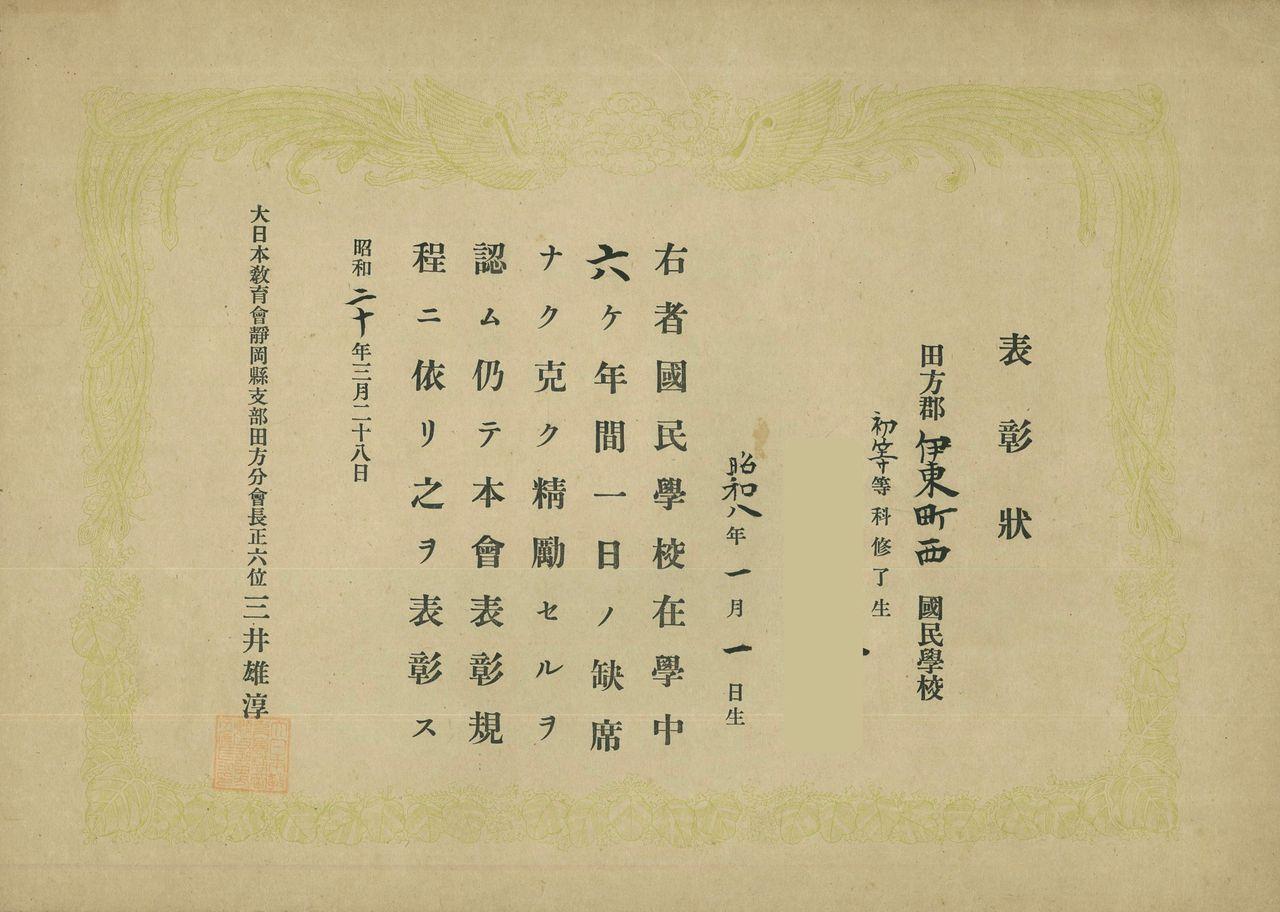 表彰狀
田方郡伊東町西 國民學校
初等等科修了生
昭和八年一月一日生
右者國民學校在學中
六ヶ年間一日ノ缺席
ナク克ク精勵セルヲ
認ム仍テ本會表彰規
程ニ依リ之ヲ表彰ス
昭和二十年三月二十八日
大日本敎育會靜岡縣支部田方分會長正六位三井雄淳